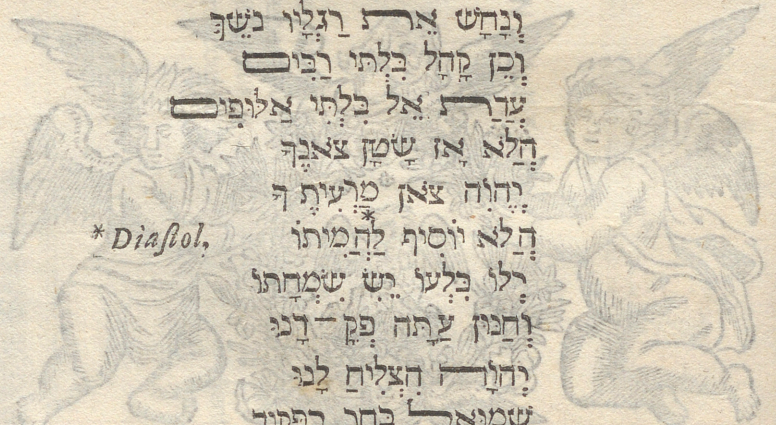 וְנָחָשׁ אֶת רַגְלָיו נֹשֵׁךְ
וְכֵן קָהָל בִּלְתּוֹ רַבִּים
עֲדַת אֵל בִּלְתּוֹ אַלּוּפִים
הֲלֹא אָז שָׂטָן צֹאנֶךָ
יְהוָֹה צֹאן מַרְעִיתֶךָ
* Diastol, הֲלֹא יוֹסִיף לַהֲמִיתוֹ
יִלּוֹ בִּלְעוֹ יֵשׁ שִׂמְחָתוֹ
וְחַנּוּן עַתָּה פְּקָ־דֵנוּ
יְהוָֹה הִצְלִיחַ לָנוּ
שְׁמוּאֵל בָּחַר